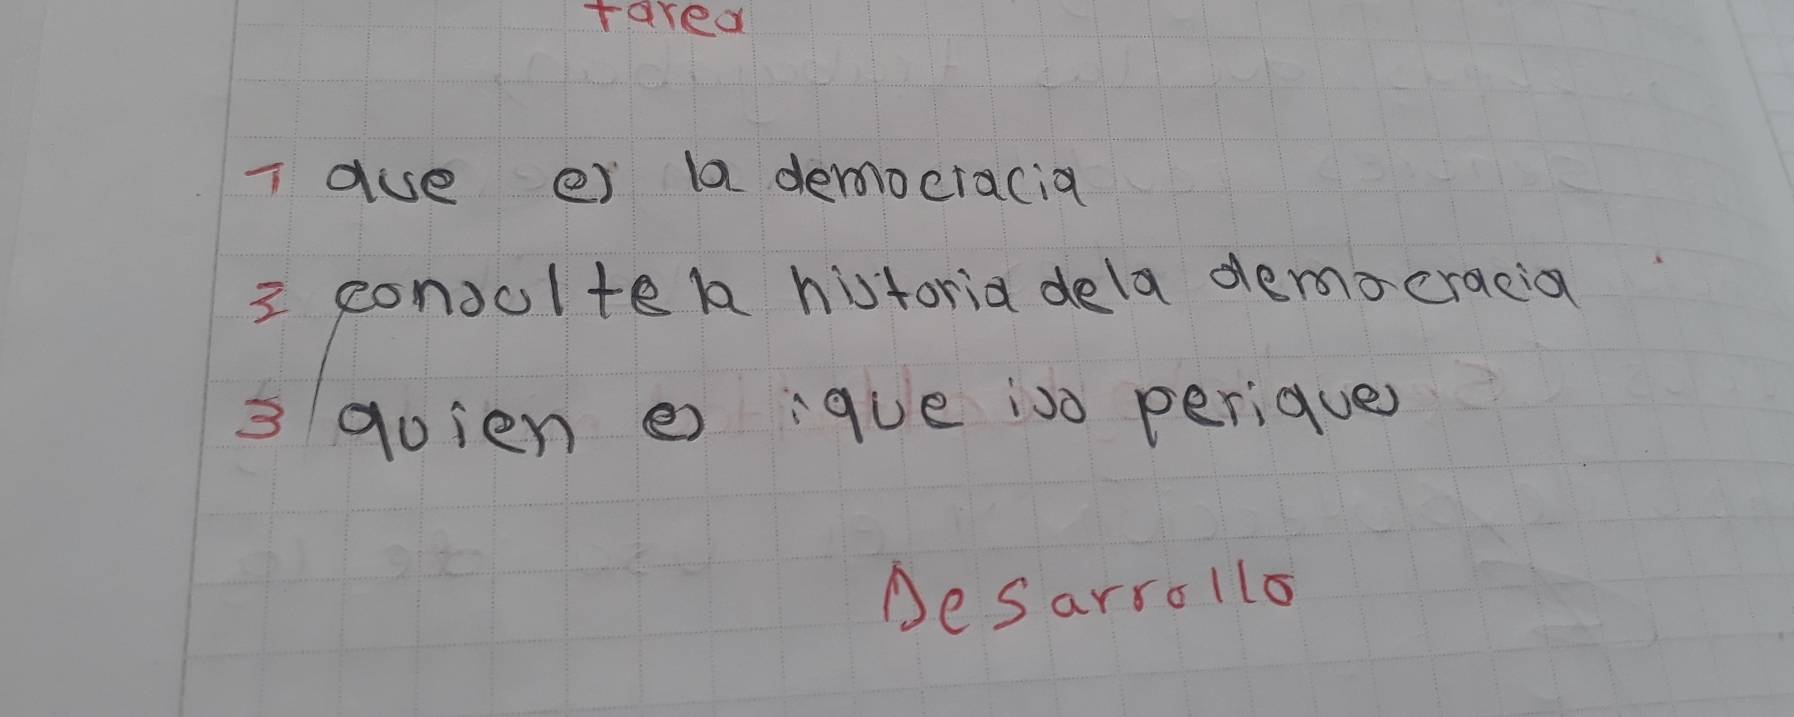 tarea
1 que es la democracia
2 consulte la historia dela democracia
3 quien es ique iso periques
Desarrollo